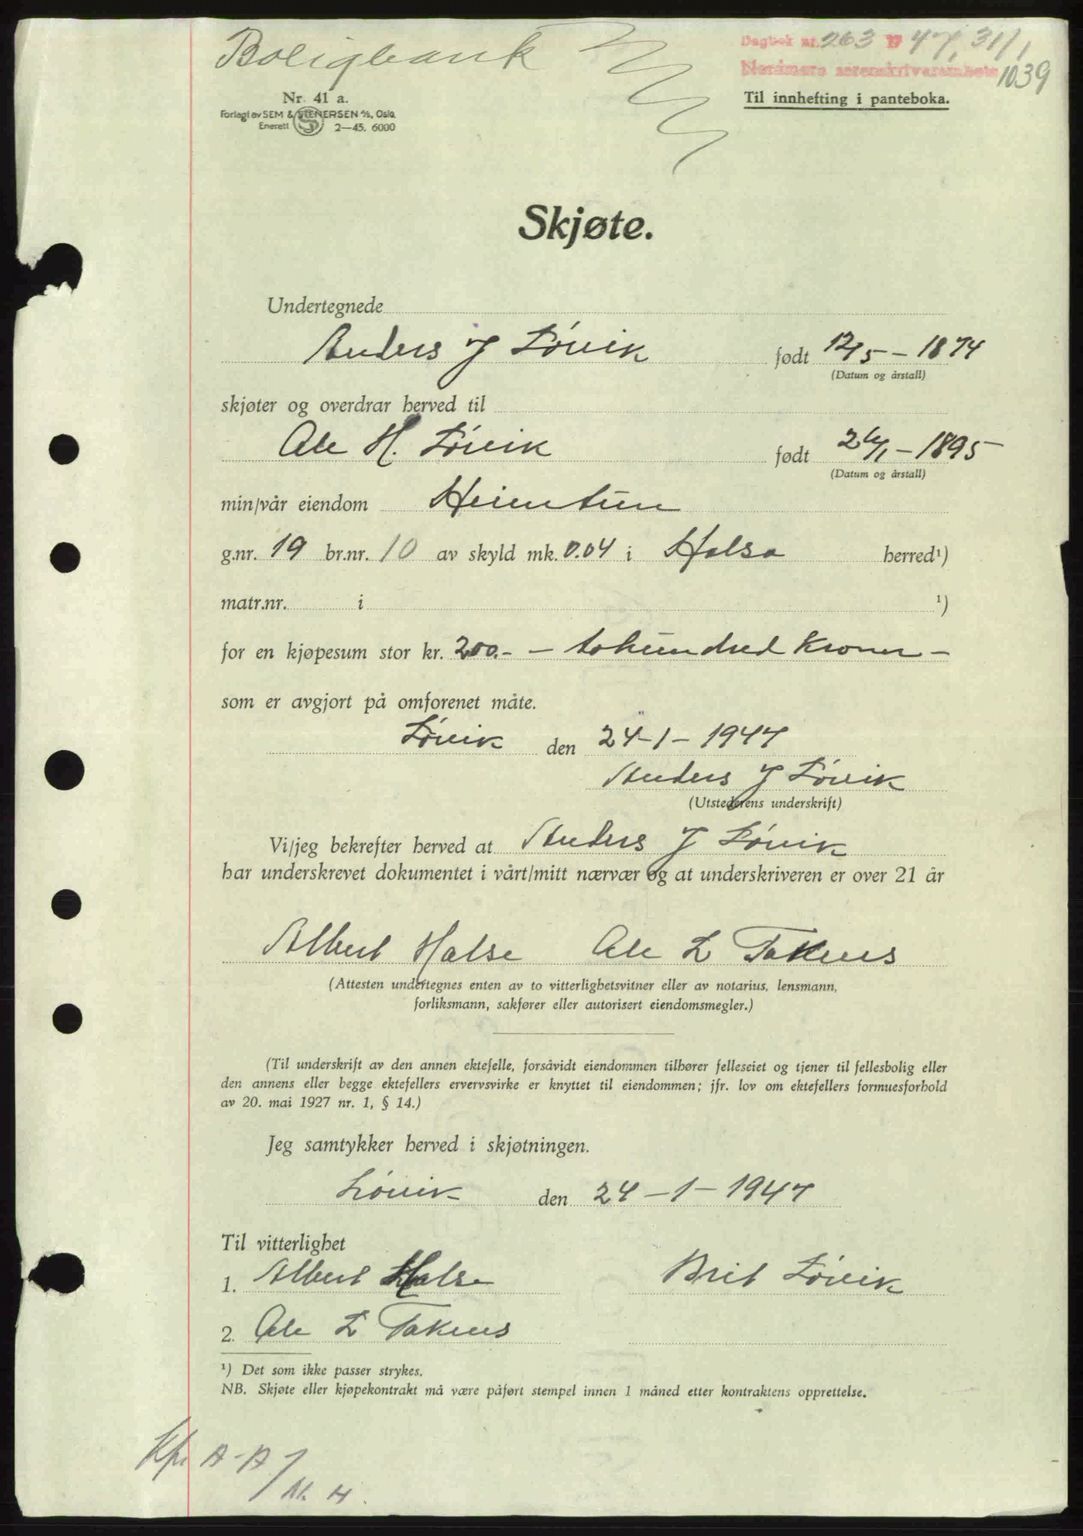 Boligbank
Dagbok nr. 263 1947, 31/1
Nordmøre sorenskriverembete 1039
Til innhefting i panteboka.
Nr. 41 a.
Forlagt av SEM & STENERSEN A/S, Oslo.
Enerett 2—45. 6000
Skjøte.
Undertegnede
Anders J Løvik født 12/5 - 1874
(Datum og årstall)
skjøter og overdrar herved til
Ole H. Løvik født 26/1 - 1895
(Datum og årstall)
min/vår eiendom Heimtun
g.nr. 19 br.nr. 10 av skyld mk. 0.04 i Halsa herred¹)
matr.nr. i ¹)
for en kjøpesum stor kr. 200.- - tohundred Kroner -
som er avgjort på omforenet måte.
Løvik den 24-1-1947
Anders J Løvik
(Utstederens underskrift)
Vi/jeg bekrefter herved at Anders J Løvik
har underskrevet dokumentet i vårt/mitt nærvær og at underskriveren er over 21 år
Albert Halse Ole L Taknes
(Attesten undertegnes enten av to vitterlighetsvitner eller av notarius, lensmann,
forliksmann, sakfører eller autorisert eiendomsmegler.)
(Til underskrift av den annen ektefelle, forsåvidt eiendommen tilhører felleseiet og tjener til fellesbolig eller
den annens eller begge ektefellers ervervsvirke er knyttet til eiendommen; jfr. lov om ektefellers formuesforhold
av 20. mai 1927 nr. 1, § 14.)
Jeg samtykker herved i skjøtningen.
Løvik den 24-1-1947
Til vitterlighet
1. Albert Halse Brit Løvik
2. Ole L Taknes
¹) Det som ikke passer strykes.
NB. Skjøte eller kjøpekontrakt må være påført stempel innen 1 måned etter kontraktens opprettelse.